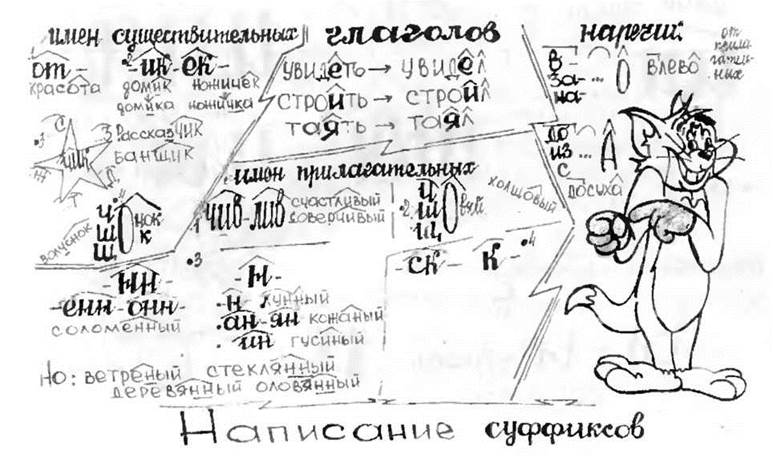 имен существительных
1 от- 2 -ик-ек-
красота домик ножичек
домика ножичка
3 С З Ж Т Д
чик
щик
Рассказчик
банщик
4 ц ш щ О нок к
волчонок
глаголов
увидеть → увидел
строить → строил
таять → таял
наречий
от прилагательных
в- за- на- ... О
влево
до из с ... А
досуха
имен прилагательных
1 чив-лив
счастливый
доверчивый
2 ц ш щ О вый
холщовый
3
-нн-
-енн-онн-
соломенный
-н-
-н- лунный
-ан-ян- кожаный
-ин- гусиный
Но: ветреный стеклянный
деревянный оловянный
4
-ск- к-
Написание суффиксов